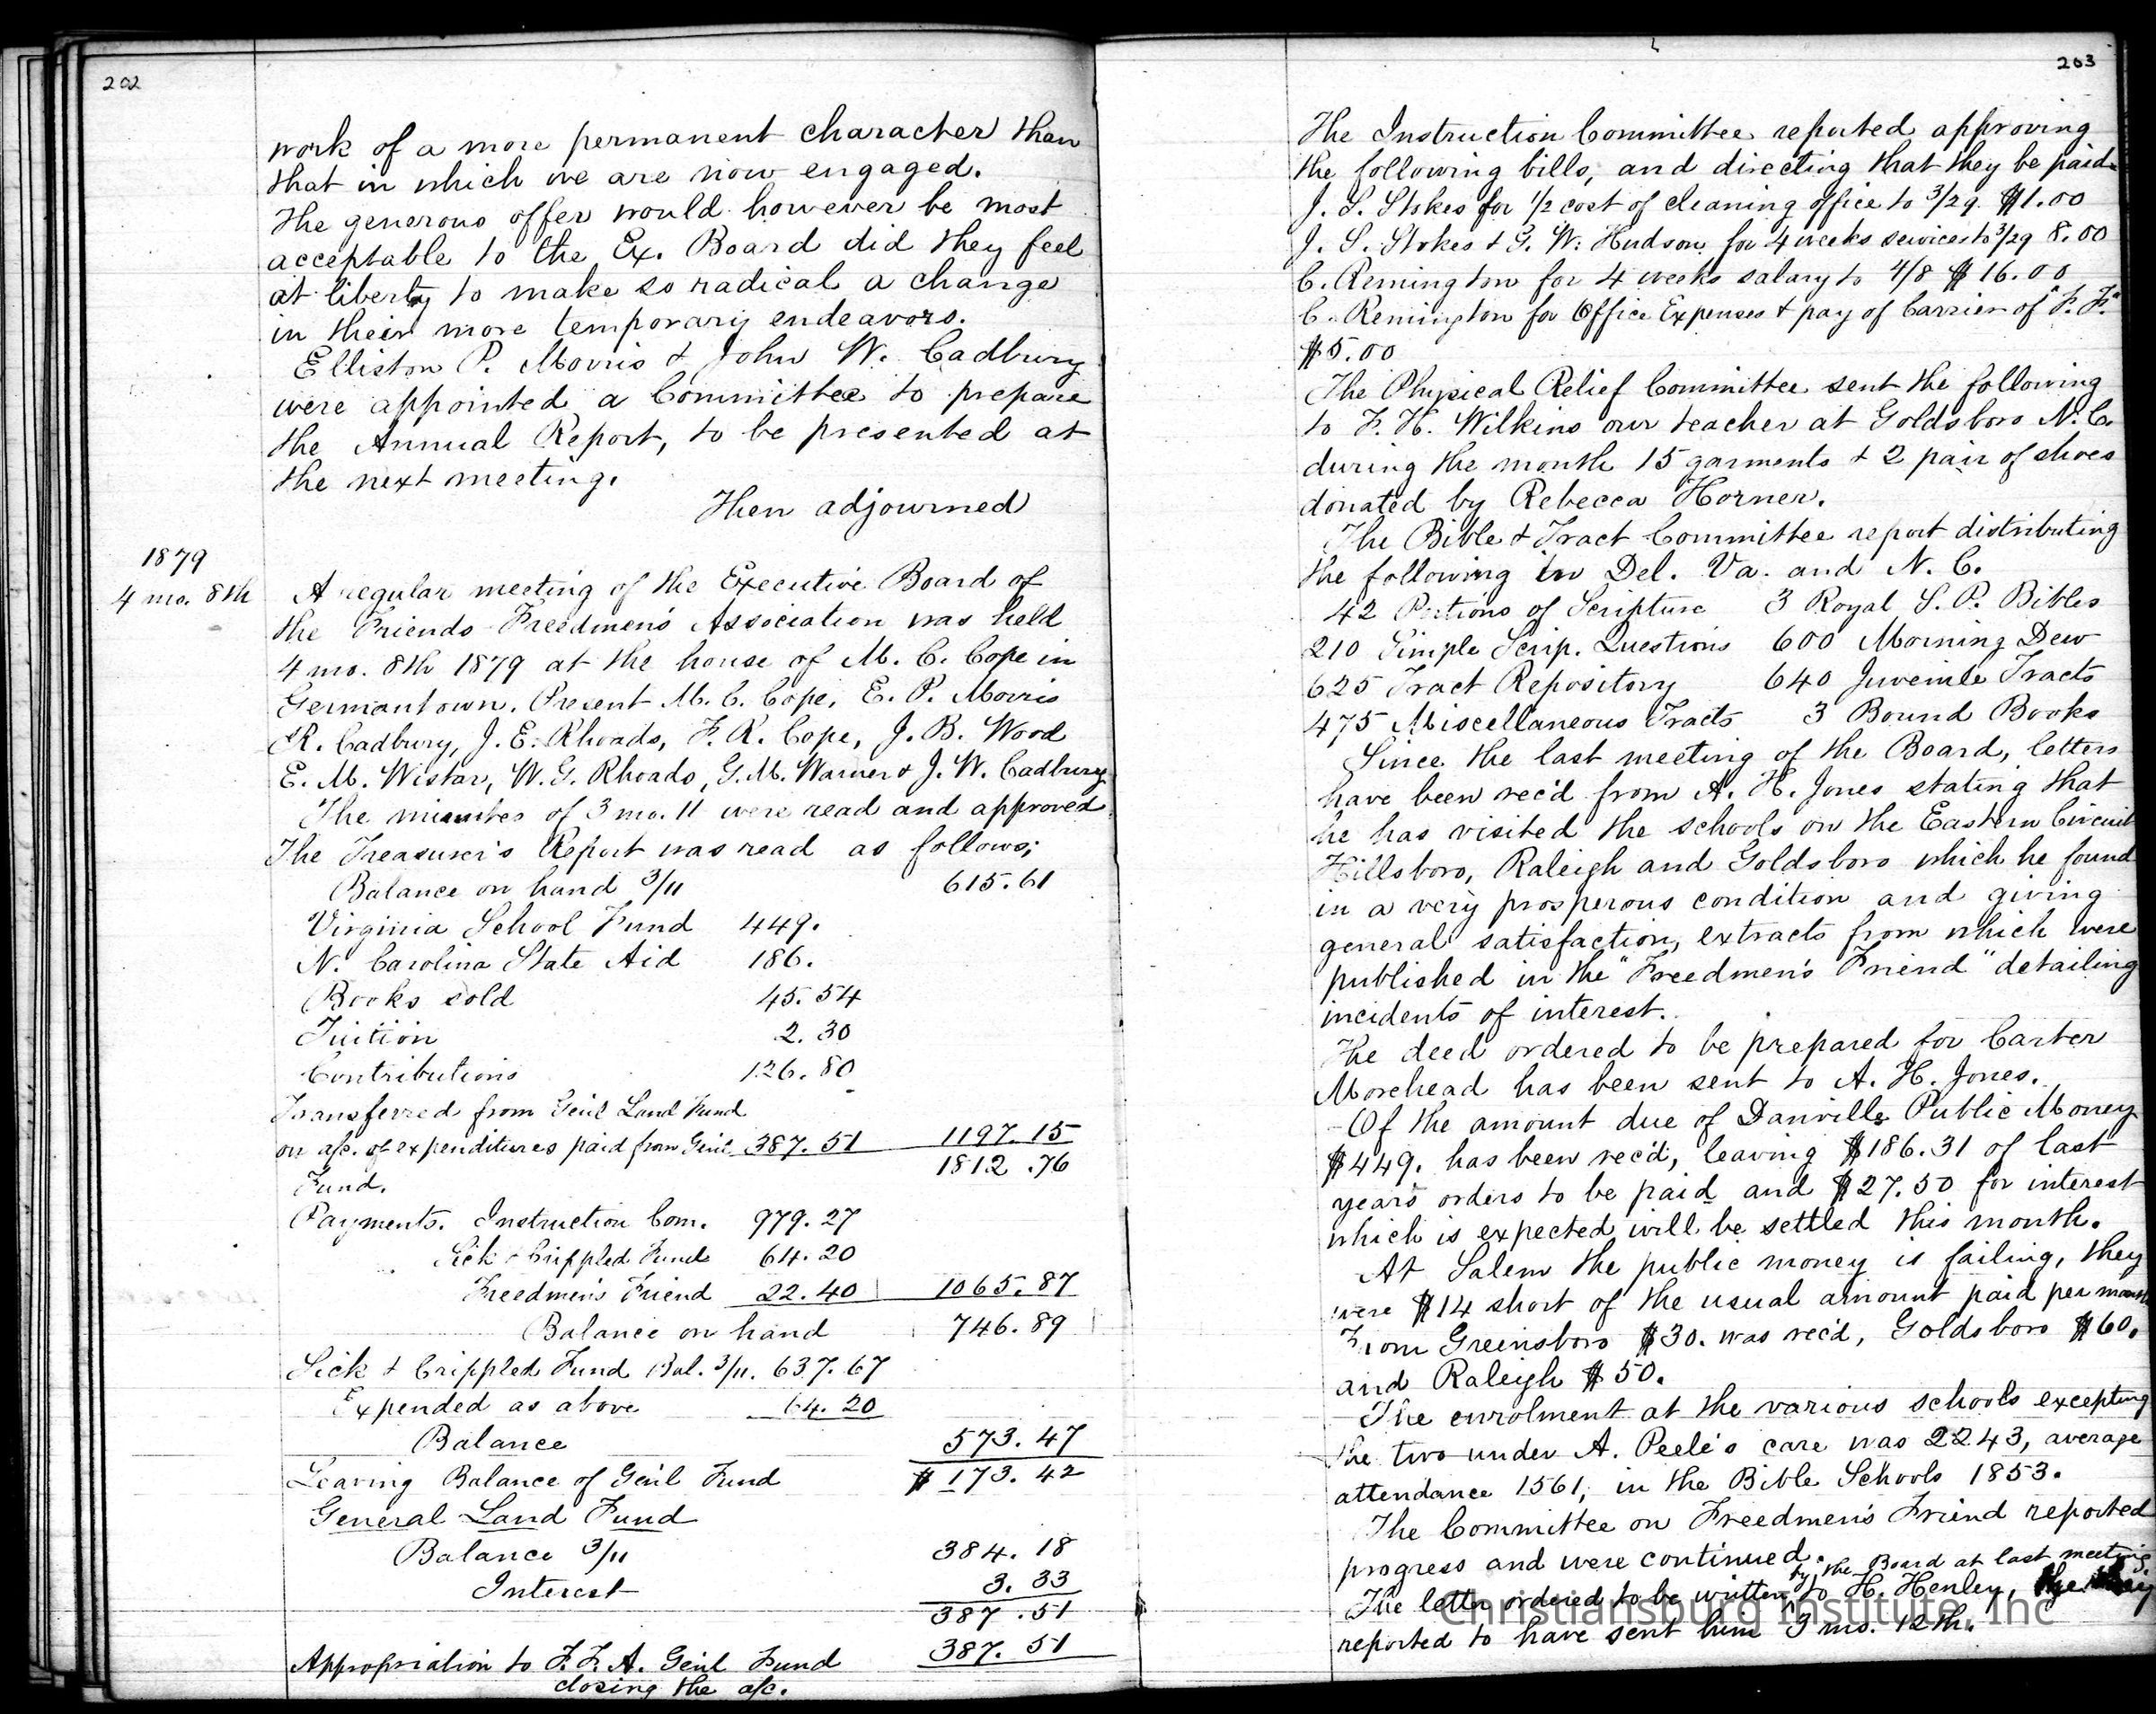 202
work of a more permanent character than
that in which we are now engaged.
The generous offer would however be most
acceptable to the Ex. Board did they feel
at liberty to make so radical a change
in their more temporary endeavors.
Elliston P. Morris & John W. Cadbury
were appointed a Committee to prepare
the Annual Report, to be presented at
the next meeting.
Then adjourned
1879
4 mo. 8th A regular meeting of the Executive Board of
the Friends Freedmen's Association was held
4 mo. 8th 1879 at the house of M. C. Cope in
Germantown. Present M. C. Cope, E. P. Morris
R. Cadbury, J. E. Rhoads, F. R. Cope, J. B. Wood
E. M. Wistar, W. G. Rhoads, G. M. Warner & J. W. Cadbury
The minutes of 3 mo. 11 were read and approved
The Treasurer's Report was read as follows;
Balance on hand 3/11 615.61
Virginia School Fund 449.
N. Carolina State Aid 186.
Books sold 45.54
Tuition 2.30
Contributions 126.80
Transferred from Genl Land Fund
on a/c. of expenditures paid from Genl 387.51 1197.15
Fund. 1812.76
Payments. Instruction Com. 979.27
Sick & Crippled Fund 64.20
Freedmen's Friend 22.40 1065.87
Balance on hand 746.89
Sick & Crippled Fund Bal. 3/11. 637.67
Expended as above 64.20
Balance 573.47
Leaving Balance of Genl Fund $173.42
General Land Fund
Balance 3/11 384.18
Interest 3.33
387.51
Appropriation to F. F. A. Genl Fund 387.51
closing the a/c.
203
The Instruction Committee reported approving
the following bills, and directing that they be paid.
J. S. Stokes for 1/2 cost of cleaning office to 3/29 $1.00
J. S. Stokes & G. W. Hudson for 4 weeks services to 3/29 8.00
C. Remington for 4 weeks salary to 4/8 $16.00
C. Remington for Office Expenses & pay of Carrier of "F. F."
$5.00
The Physical Relief Committee sent the following
to F. H. Wilkins our teacher at Goldsboro N. C.
during the month 15 garments & 2 pair of shoes
donated by Rebecca Horner.
The Bible & Tract Committee report distributing
the following in Del. Va. and N. C.
42 Portions of Scripture 3 Royal S. P. Bibles
210 Simple Scrip. Questions 600 Morning Dew
625 Tract Repository 640 Juvenile Tracts
475 Miscellaneous Tracts 3 Bound Books
Since the last meeting of the Board, letters
have been rec'd from A. H. Jones stating that
he has visited the schools on the Eastern Circuit
Hillsboro, Raleigh and Goldsboro which he found
in a very prosperous condition and giving
general satisfaction, extracts from which were
published in the "Freedmen's Friend" detailing
incidents of interest.
The deed ordered to be prepared for Carter
Morehead has been sent to A. H. Jones.
Of the amount due of Danville Public Money
$449. has been rec'd, leaving $186.31 of last
years orders to be paid and $27.50 for interest
which is expected will be settled this month.
At Salem the public money is failing, they
were $14 short of the usual amount paid per month
From Greensboro $30. was rec'd, Goldsboro $60.
and Raleigh $50.
The enrolment at the various schools excepting
the two under A. Peele's care was 2243, average
attendance 1561, in the Bible Schools 1853.
The Committee on Freedmen's Friend reported
progress and were continued.
by the Board at last meeting
The letter ordered to be written to H. Henley, they
reported to have sent him 3 mo. 12th.
Christiansburg Institute, Inc